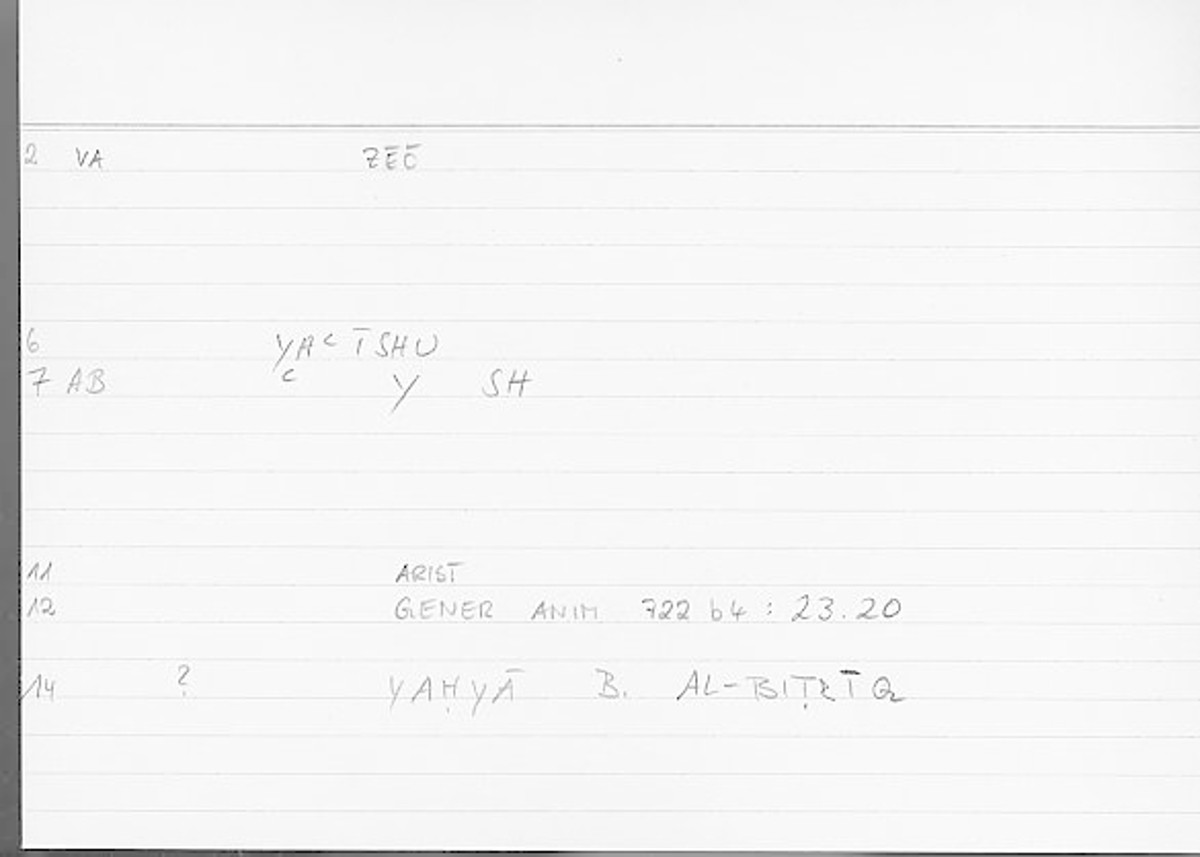 2 VA ZĒŌ
6 YAʿĪSHU
7 AB ʿ Y SH
11 ARIST
12 GENER ANIM 722 b4 : 23.20
14 ? YAḤYĀ B. AL-BIṬRĪQ